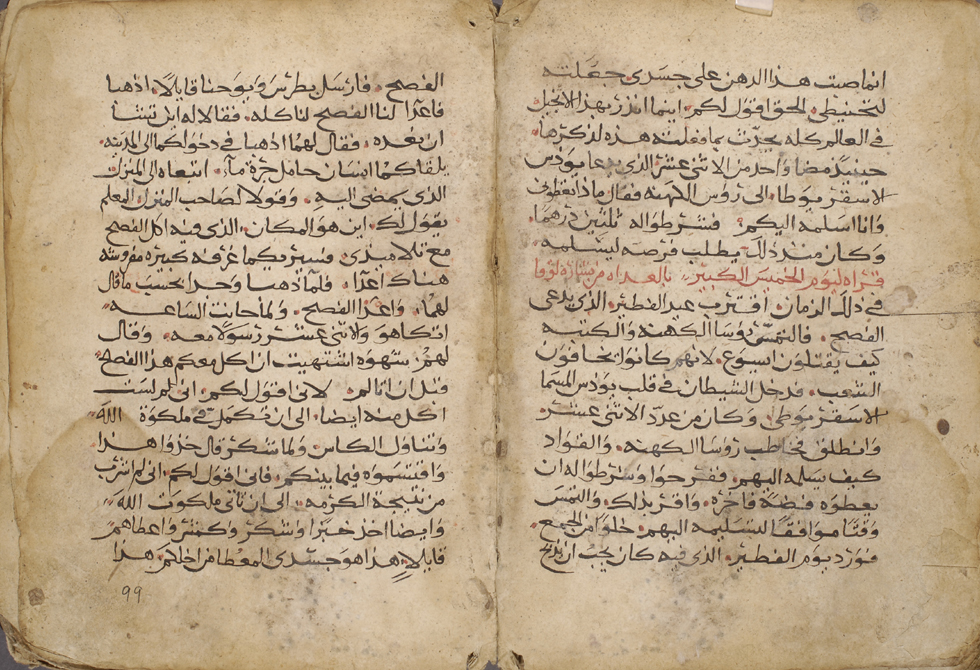 انما صبت هذا الدهن على جسدى جعلته
لتحنيطى الحق اقول لكم اينما انذر بهذا الانجيل
فى العالم كله يحدث بما فعلته هذه لذكرها
حينيذ مضا واحد من الاثنى عشر الذى يدعا يودس
الاسقريوطا الى رؤس الكهنه فقال ماذا تعطونى
وانا اسلمه اليكم فشرطوا له ثلثين درهما
وكان منذ ذلك يطلب فرصه ليسلمه
قراه ليوم الخميس الكبير بالغداه من بشارة لوقا
فى ذلك الزمان اقترب عيد الفطير الذى يدعى
الفصح فالتمس رؤسا الكهنه والكتبه
كيف يقتلون ايسوع لانهم كانوا يخافون
الشعب فدخل الشيطان فى قلب يودس المسما
الاسقريوطى وكان من عدد الاثنى عشر
وانطلق فخاطب رؤسا الكهنه والقواد
كيف يسلمه اليهم ففرحوا وشرطوا له ان
يعطوه فضة فاخره واقر بذلك والتمس
وقتا موافقا ليسلمه اليهم خلوا من الجمع
فورد يوم الفطير الذى فيه كان يجب ان يذبح
الفصح فارسل بطرس ويوحنا قايلا اذهبا
فاعدا لنا الفصح لناكله فقالا له اين تشا
ان نعده فقال لهما اذهبا فى دخولكما الى المدينه
يلقاكما انسان حامل جرة ما اتبعاه الى المنزل
الذى يمضى اليه وقولا لصاحب المنزل المعلم
يقول لك اين هو المكان الذى فيه اكل الفصح
مع تلاميذى فسيريكما غرفه كبيره مفروشه
هناك اعدا فلما ذهبا وجدا بحسب ما قال
لهما واعدا الفصح ولما حانت الساعه
اتكا هو والاثنى عشر رسولا معه وقال
لهم شهوه اشتهيت ان اكل معكم هذا الفصح
قبل ان اتالم لانى اقول لكم انى لست
اكل منه ايضا الى ان تكمل فى ملكوة الله
وتناول الكاس ولما شكر قال خذوا هذا
واقتسموه فيما بينكم فانى اقول لكم انى لم اشرب
من نتيجة الكرمه الى ان تاتى ملكوت الله
وايضا اخذ خبزا وشكر وكسر واعطاهم
قايلا هذا هو جسدى المعطا من اجلكم هذا
99